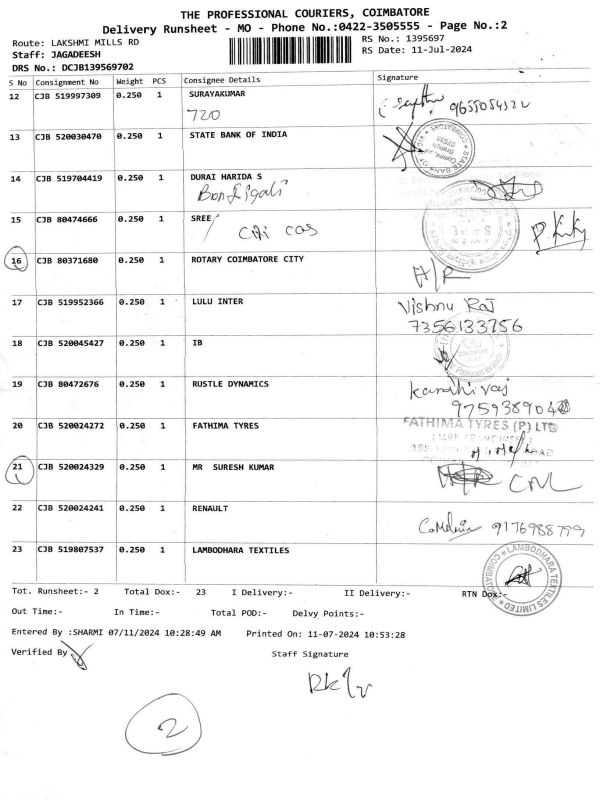 THE PROFESSIONAL COURIERS, COIMBATORE
Delivery Runsheet - MO - Phone No.:0422-3505555 - Page No.:2
Route: LAKSHMI MILLS RD
RS No.: 1395697
Staff: JAGADEESH
RS Date: 11-Jul-2024
DRS No.: DCJB139569702
S No Consignment No Weight PCS Consignee Details Signature
12 CJB 519997309 0.250 1 SURAYAKUMAR
720
13 CJB 520030470 0.250 1 STATE BANK OF INDIA
14 CJB 519704419 0.250 1 DURAI HARIDA S
15 CJB 80474666 0.250 1 SREE
16 CJB 80371680 0.250 1 ROTARY COIMBATORE CITY
17 CJB 519952366 0.250 1 LULU INTER
Vishnu Raj
7356133756
18 CJB 520045427 0.250 1 IB
19 CJB 80472676 0.250 1 RUSTLE DYNAMICS
20 CJB 520024272 0.250 1 FATHIMA TYRES
FATHIMA TYRES (P) LTD
21 CJB 520024329 0.250 1 MR SURESH KUMAR
22 CJB 520024241 0.250 1 RENAULT
23 CJB 519807537 0.250 1 LAMBODHARA TEXTILES
LAMBODHARA TEXTILES LIMITED
COIMBATORE
Tot. Runsheet:- 2 Total Dox:- 23 I Delivery:- II Delivery:- RTN Dox:-
Out Time:- In Time:- Total POD:- Delvy Points:-
Entered By :SHARMI 07/11/2024 10:28:49 AM Printed On: 11-07-2024 10:53:28
Verified By
Staff Signature
2